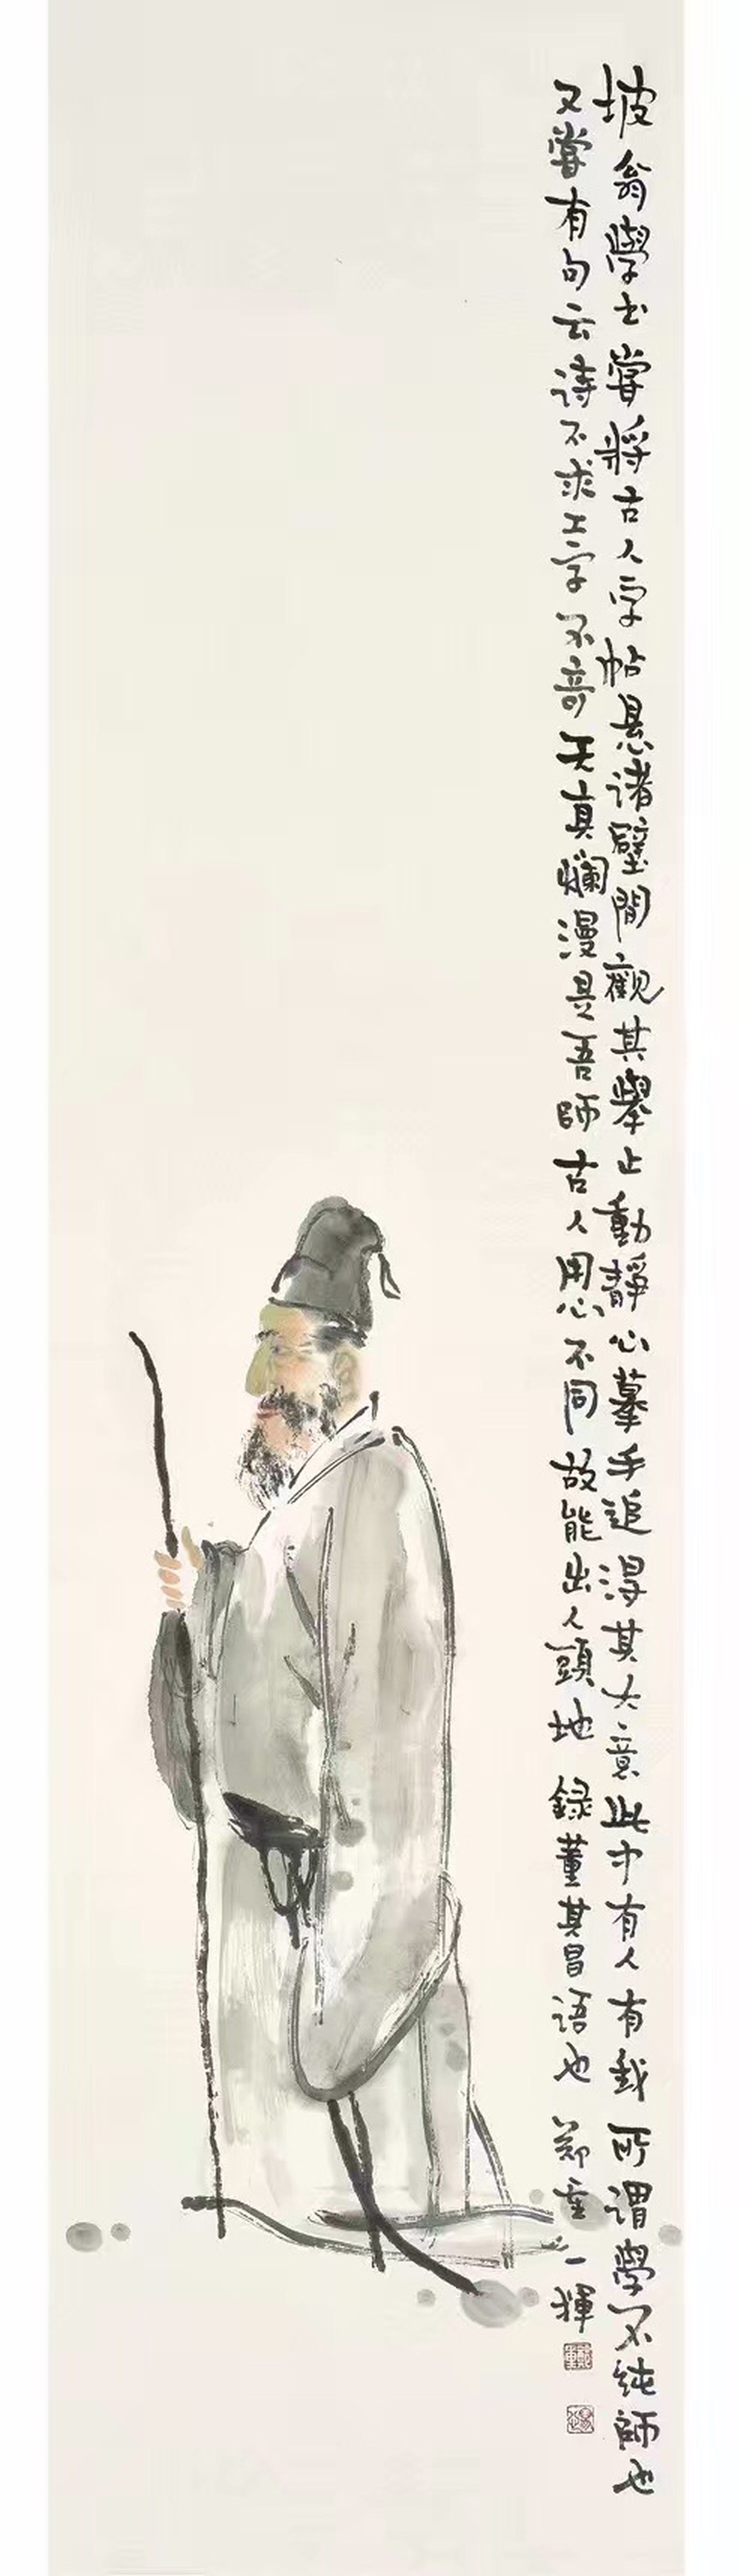 坡翁學书嘗將古人字帖悬诸壁間觀其舉止動靜心摹手追得其大意此中有人有我所謂學不純師也
又嘗有句云诗不求工字不奇天真爛漫是吾師古人用心不同故能出人頭地 録董其昌语也 郑重一揮